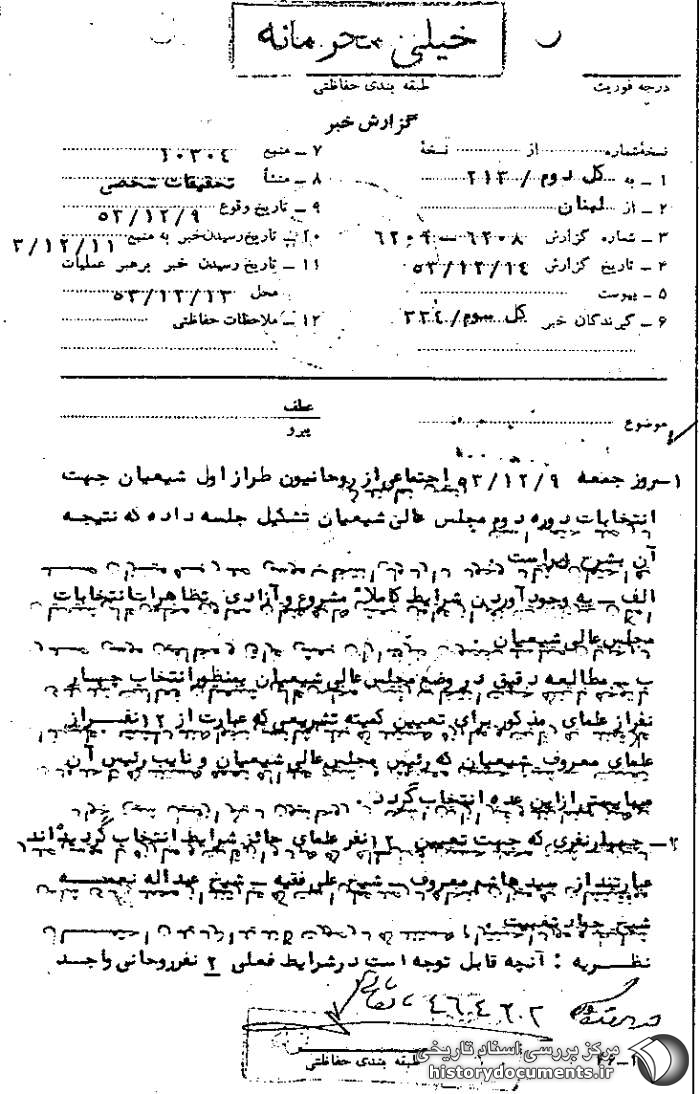 خیلی محرمانه
درجه فوریت
طبقه بندی حفاظتی
گزارش خبر
نسخهٔ شماره از نسخهٔ
۱ ـ به کل دوم / ۲۱۳
۲ ـ از لبنان
۳ ـ شماره گزارش
۴ ـ تاریخ گزارش ۵۳/۱۲/۱۴
۵ ـ پیوست
۶ ـ گیرندگان خبر کل سوم/۳۳۴
۷ ـ منبع ۱۰۳۰۴
۸ ـ منشأ تحقیقات شخصی
۹ ـ تاریخ وقوع ۵۳/۱۲/۹
۱۰ ـ تاریخ رسیدن خبر به منبع ۳/۱۲/۱۱
۱۱ ـ تاریخ رسیدن خبر برهبر عملیات
محل ۵۳/۱۲/۱۳
۱۲ ـ ملاحظات حفاظتی
موضوع
عطف
پیرو
۱ـ روز جمعه ۵۳/۱۲/۹ اجتماعی از روحانیون طراز اول شیعیان جهت
انتخابات دوره دوم مجلس عالی شیعیان تشکیل جلسه داده که نتیجه
آن بشرح زیر است
الف ـ به وجود آوردن شرایط کاملاً مشروع و آزادی تظاهرات انتخابات
مجلس عالی شیعیان .
ب ـ مطالعه دقیق در وضع مجلس عالی شیعیان بمنظور انتخاب چهار
نفر از علمای مذکور برای تعیین کمیته تشریعی که عبارت از ۱۲ نفر از
علمای معروف شیعیان که رئیس مجلس عالی شیعیان و نایب رئیس آن
میبایستی از این عده انتخاب گردد .
۲ـ چهار نفری که جهت تعیین ۱۲ نفر علمای حائز شرایط انتخاب گردیده اند
عبارتند از سید هاشم معروف ـ شیخ علی فقیه ـ شیخ عبداله نعمه
شیخ جواد
نظریه : آنچه قابل توجه است در شرایط فعلی ۲ نفر روحانی واجد
طبقه بندی حفاظتی
مرکز بررسی اسناد تاریخی
historydocuments.ir